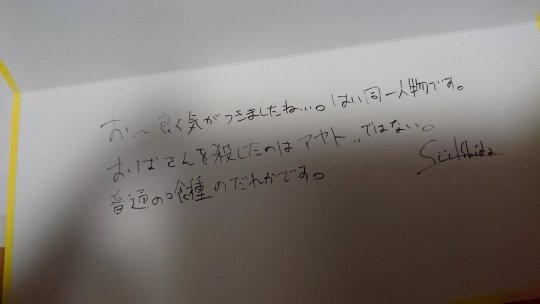 お〜良く気がつきましたね…。はい同一人物です。
おばさんを殺したのはアヤト‥ではない。
普通の喰種のだれかです。
Sui Ishida